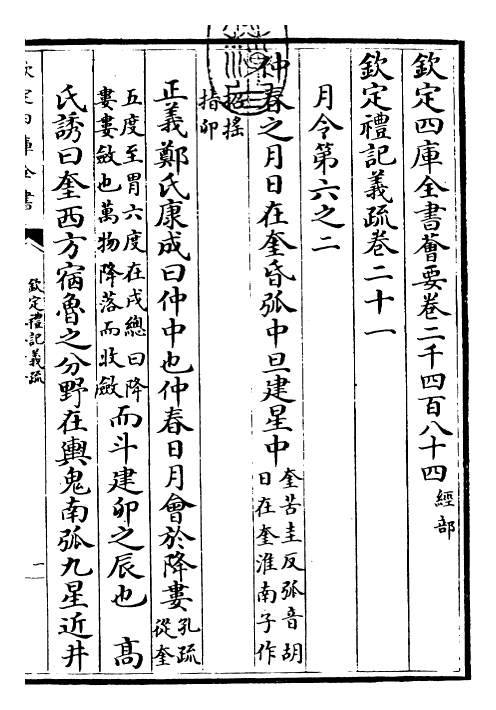 欽定四庫全書薈要卷二千四百八十四 經部
欽定禮記義疏卷二十一
月令第六之二
仲春之月日在奎昏弧中旦建星中 奎苦圭反弧音胡
日在奎淮南子作
招搖
指卯
正義鄭氏康成曰仲中也仲春日月會於降婁 孔疏
從奎
五度至胃六度在戌總曰降
婁婁斂也萬物降落而收斂
而斗建卯之辰也 高
氏誘曰奎西方宿魯之分野在輿鬼南弧九星近井
欽定四庫全書
欽定禮記義疏
一